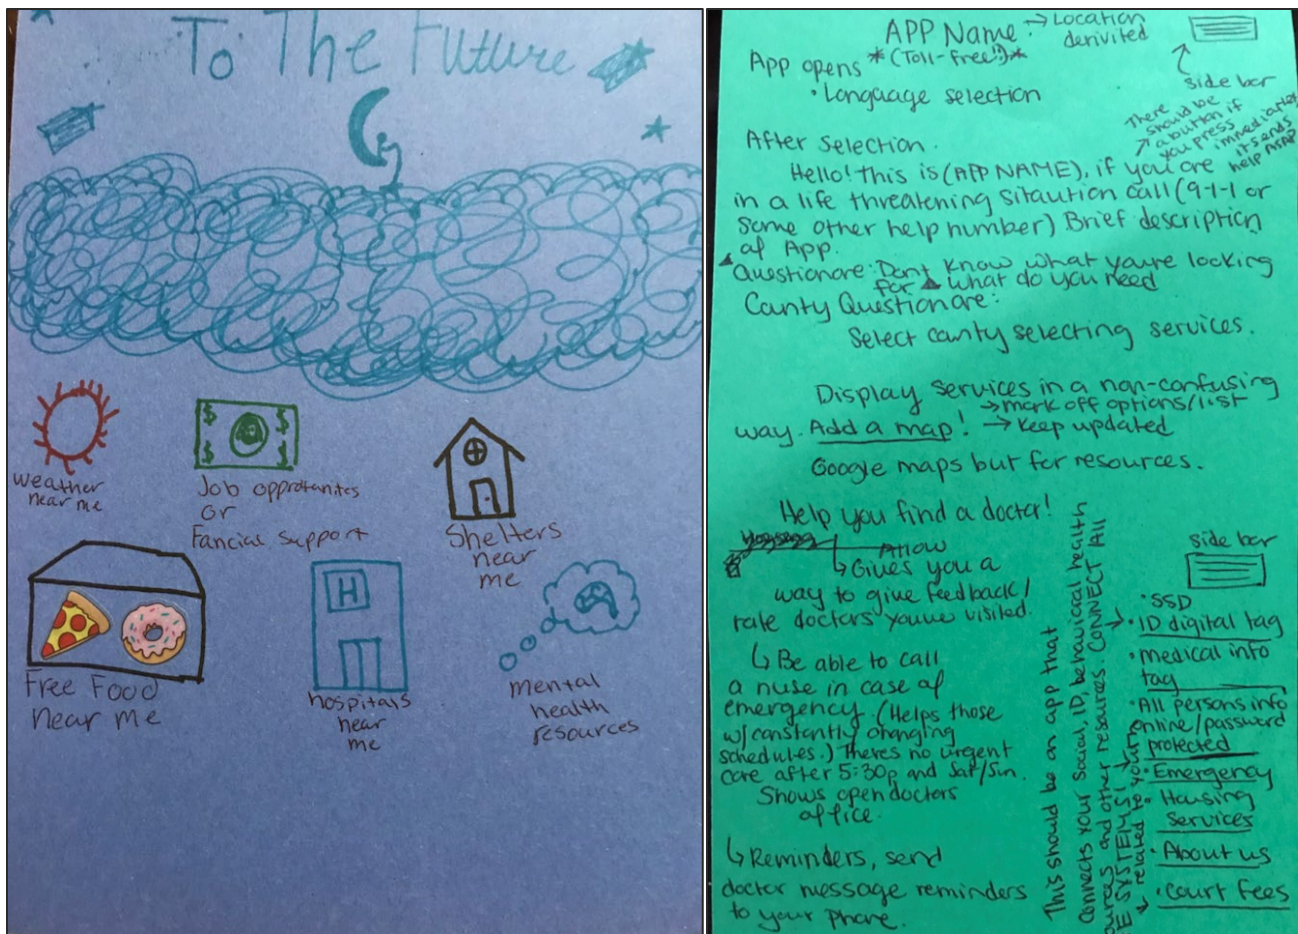 To The Future
weather
near me
Job opprotunites
or
Fancial support
Shelters
near
me
Free Food
Near me
H
hospitals
near
me
mental
health
resources
APP Name → Location
derivited
App opens *(Toll-free!)*
• Language selection
side bar
There
should be
→ a button if
you press
immediatley
it sends
help ASAP
After selection.
Hello! this is (APP NAME), if you are
in a life threatening sitaution call (9-1-1 or
some other help number) Brief description
of App.
Questionare: Don't know what you're looking
for ▲ what do you need
County Questionare:
Select county selecting services.
Display services in a non-confusing
→ mark off options/list
way. Add a map! → Keep updated
Google maps but for resources.
Help you find a doctor!
Allow
↳ Gives you a
way to give feedback/
rate doctors youve visited.
↳ Be able to call
a nuse in case of
emergency. (Helps those
w/constantly changing
schedules.) Theres no urgent
care after 5:30p and Sat/Sun.
Shows open doctors
office.
↳ Reminders, send
doctor message reminders
to your phone.
This should be an app that
connects your Social, ID, behavioral health
and other resources. CONNECT All
SYSTEMS!
related to your
side bar
• SSD
• ID digital tag
• medical info
tag
• All persons info
online/password
protected
• Emergency
Housing
services
• About us
• Court Fees